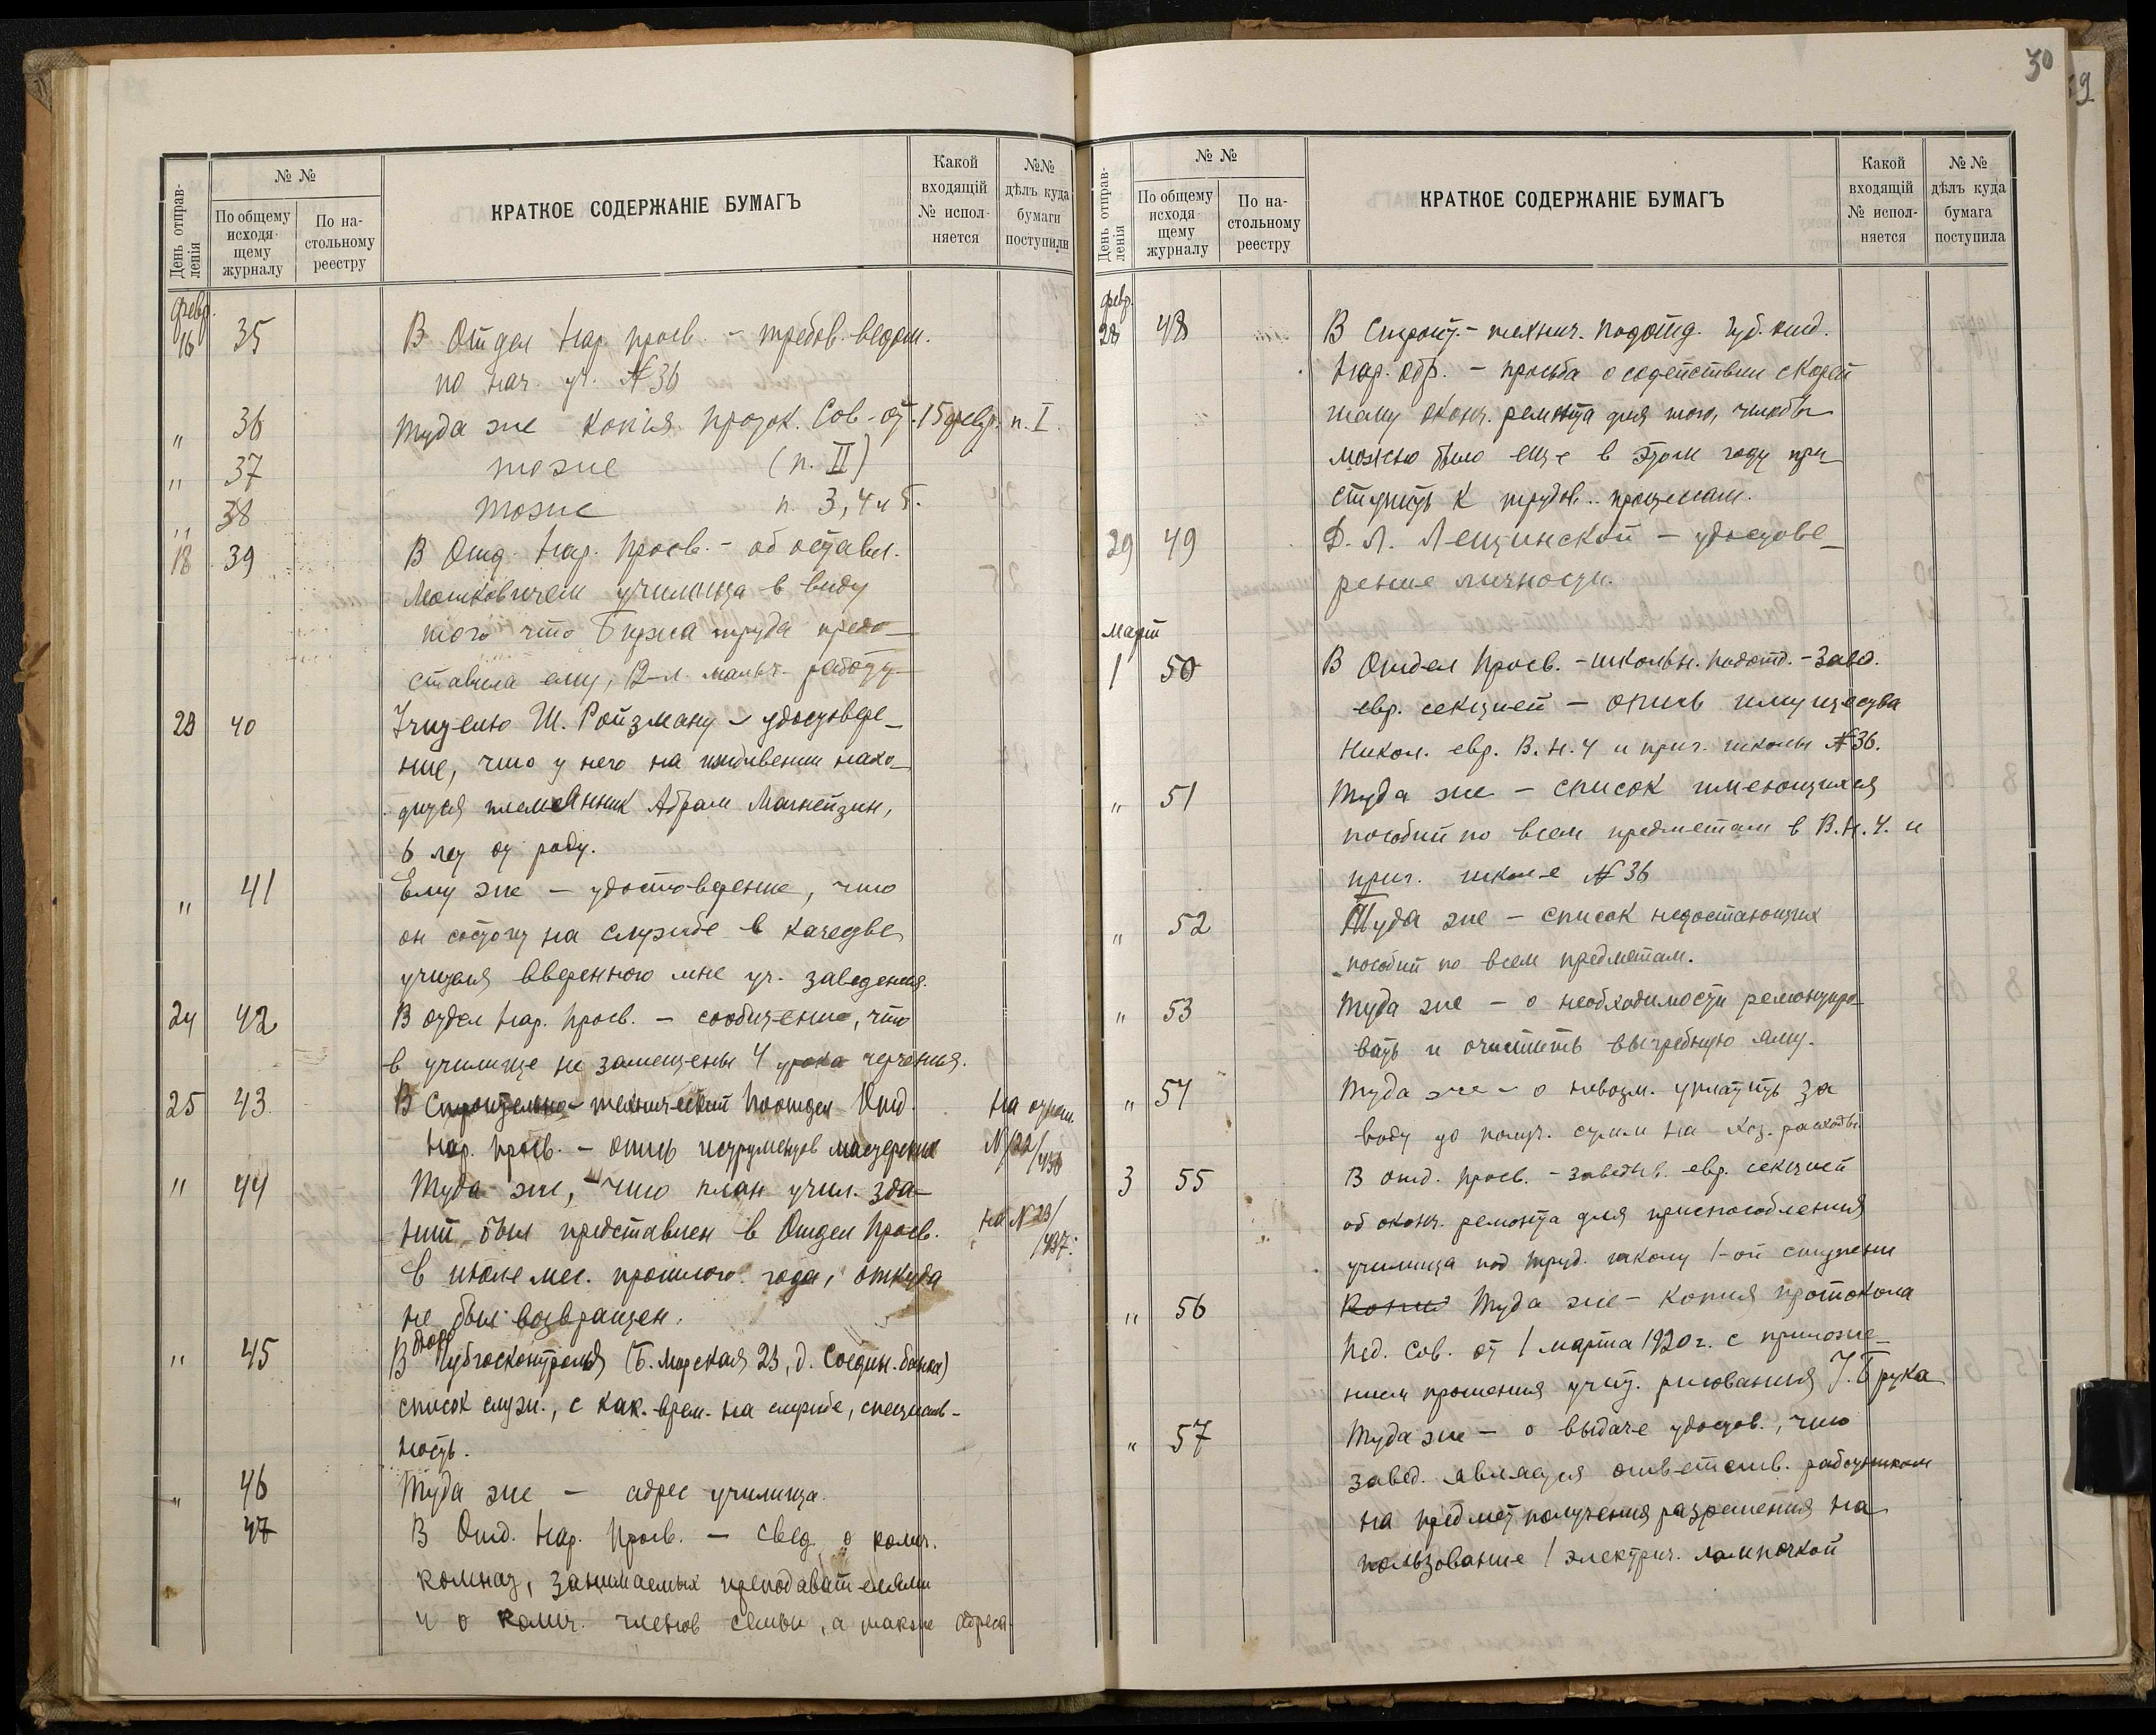 День отправ-
ленія
№ №
По общему
исходя-
щему
журналу
По на-
стольному
реестру
КРАТКОЕ СОДЕРЖАНІЕ БУМАГЪ
Какой
входящій
№ испол-
няется
№№
дѣлъ куда
бумаги
поступили
Февр.
16 35 В Отдел Нар. просв. - требов. ведом.
по нач. уч. № 36
" 36 Туда же копия проток. Сов. от 15 февр. п. I.
" 37 тоже (п. II)
" 38 тоже п. 3, 4 и 5.
18 39 В Отд. Нар. Просв. - об оставл.
Мошковичем училища в виду
того что Биржа труда предо-
ставила ему, 12-л. мальч. работу
23 40 Учителю Ш. Ройзману - удостовере-
ние, что у него на иждивении нахо-
дится племянник Абрам Магнейзин,
6 лет от роду.
" 41 Ему же - удостоверение, что
он состоит на службе в качестве
учителя вверенного мне уч. заведения.
24 42 В отдел Нар. Просв. - сообщение, что
в училище не замещены 4 урока черчения.
25 43 В Строительно-технический Поотдел Отд. На отнош.
Нар. просв. - опись иструментов мастерских №/22/436
" 44 Туда же, - что план учил. зда-
ний был представлен в Отдел Просв. на № 23/437.
в июле мес. прошлого года, откуда
не был возвращен.
" 45 В Губгосконтроль (Б. Морская 23, д. Соедин. банка)
список служ., с как. врем. на службе, специаль-
ность.
" 46 Туда же - адрес училища.
47 В Отд. Нар. Просв. - свед. о колич.
комнат, занимаемых преподавателями
и о колич. членов семьи, а также адреса.
30
29
День отправ-
ленія
№ №
По общему
исходя-
щему
журналу
По на-
стольному
реестру
КРАТКОЕ СОДЕРЖАНІЕ БУМАГЪ
Какой
входящій
№ испол-
няется
№ №
дѣлъ куда
бумага
поступила
Февр.
28 48 В Строит.-технич. подотд. Губ. отд.
Нар. обр. - просьба о содействии скорей
шему оконч. ремонта для того, чтобы
можно было еще в этом году при-
ступить к трудов. процессам.
29 49 Д. Л. Лещинской - удостове-
рение личности.
Март
1 50 В Отдел Просв. - школьн. подотд. - Завед.
евр. секцией - опись имущества
Никол. евр. В.Н.У и приг. школы № 36.
" 51 Туда же - список имеющихся
пособий по всем предметам в В.Н.У. и
приг. школе № 36
" 52 Туда же - список недостающих
пособий по всем предметам.
" 53 Туда же - о необходимости ремонтиро-
вать и очистить выгребную яму.
" 54 Туда же - о невозм. уплатить за
воду до получ. сумм на хоз. расходы
3 55 В отд. просв. - заведыв. евр. секцией
об оконч. ремонта для приспособления
училища под труд. школу 1-ой ступени
" 56 Копия Туда же - копия протокола
Пед. Сов. от 1 марта 1920 г. с приложе-
нием прошения учит. рисования У. Брука
" 57 Туда же - о выдаче удостов., что
завед. является ответств. работником
на предмет получения разрешения на
пользование 1 электрич. лампочкой